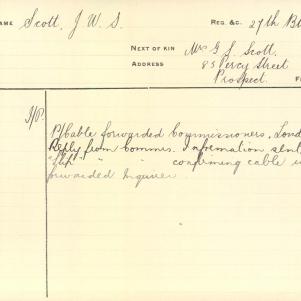 NAME Scott, J W S. REG. &C. 27th B
NEXT OF KIN Mrs G J Scott.
ADDRESS 83 Percy Street
Prospect. F
P/Cable forwarded Commissioners, Lond
Reply from Commrs. Information sent
" " confirming cable
forwarded Inquirer